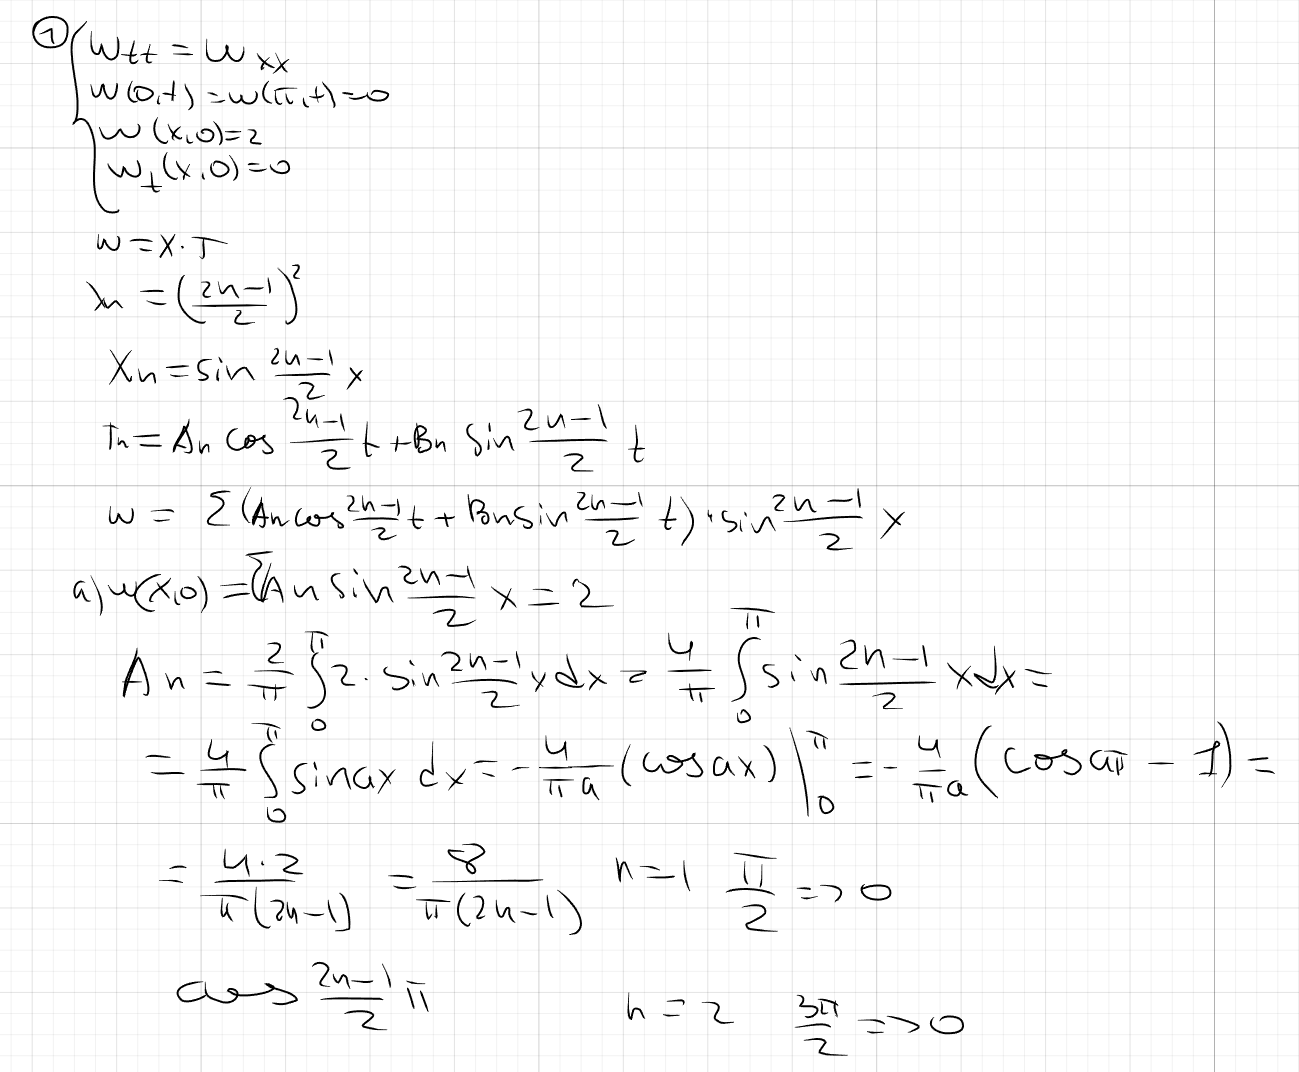 ① w_tt = w_xx
w(0,t) = w(π,t) = 0
w(x,0) = 2
w_t(x,0) = 0
w = X·T
λn = ((2n-1)/2)^2
Xn = sin (2n-1)/2 x
Tn = An cos (2n-1)/2 t + Bn sin (2n-1)/2 t
w = Σ(An cos (2n-1)/2 t + Bn sin (2n-1)/2 t)·sin (2n-1)/2 x
a) w(x,0) = Σ An sin (2n-1)/2 x = 2
An = 2/π ∫_0^π 2·sin (2n-1)/2 x dx = 4/π ∫_0^π sin (2n-1)/2 x dx =
= 4/π ∫_0^π sin ax dx = -4/(πa) (cos ax)|_0^π = -4/(πa) (cos aπ - 1) =
= 4·2/(π(2n-1)) = 8/(π(2n-1)) n=1 π/2 => 0
cos (2n-1)/2 π n=2 3π/2 => 0